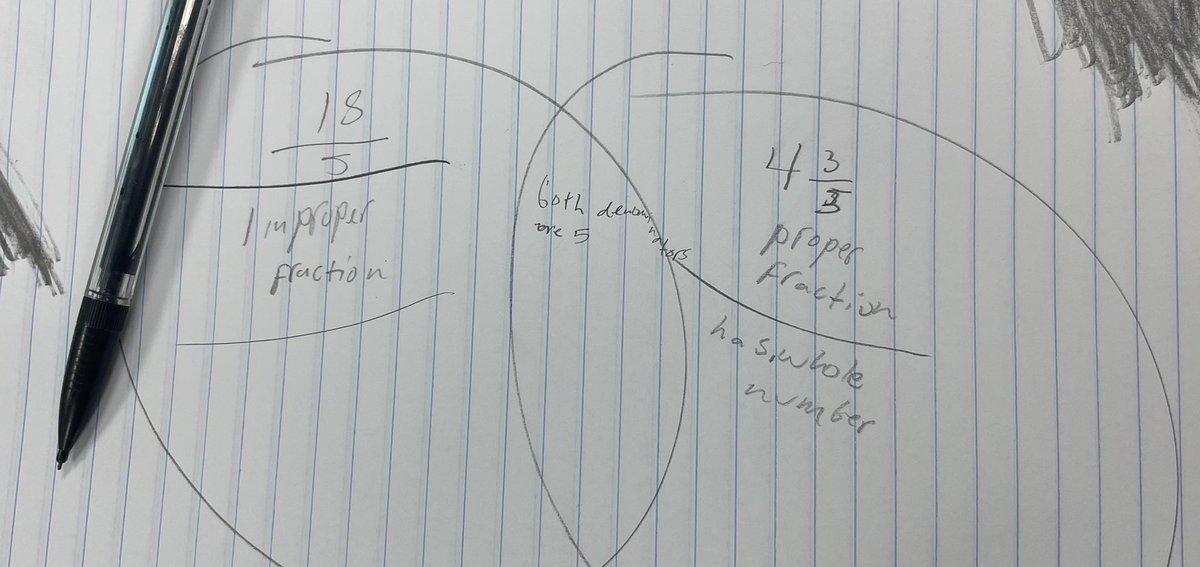 18
5
Improper
fraction
both denominators
are 5
4 3
5
proper
fraction
has whole
number